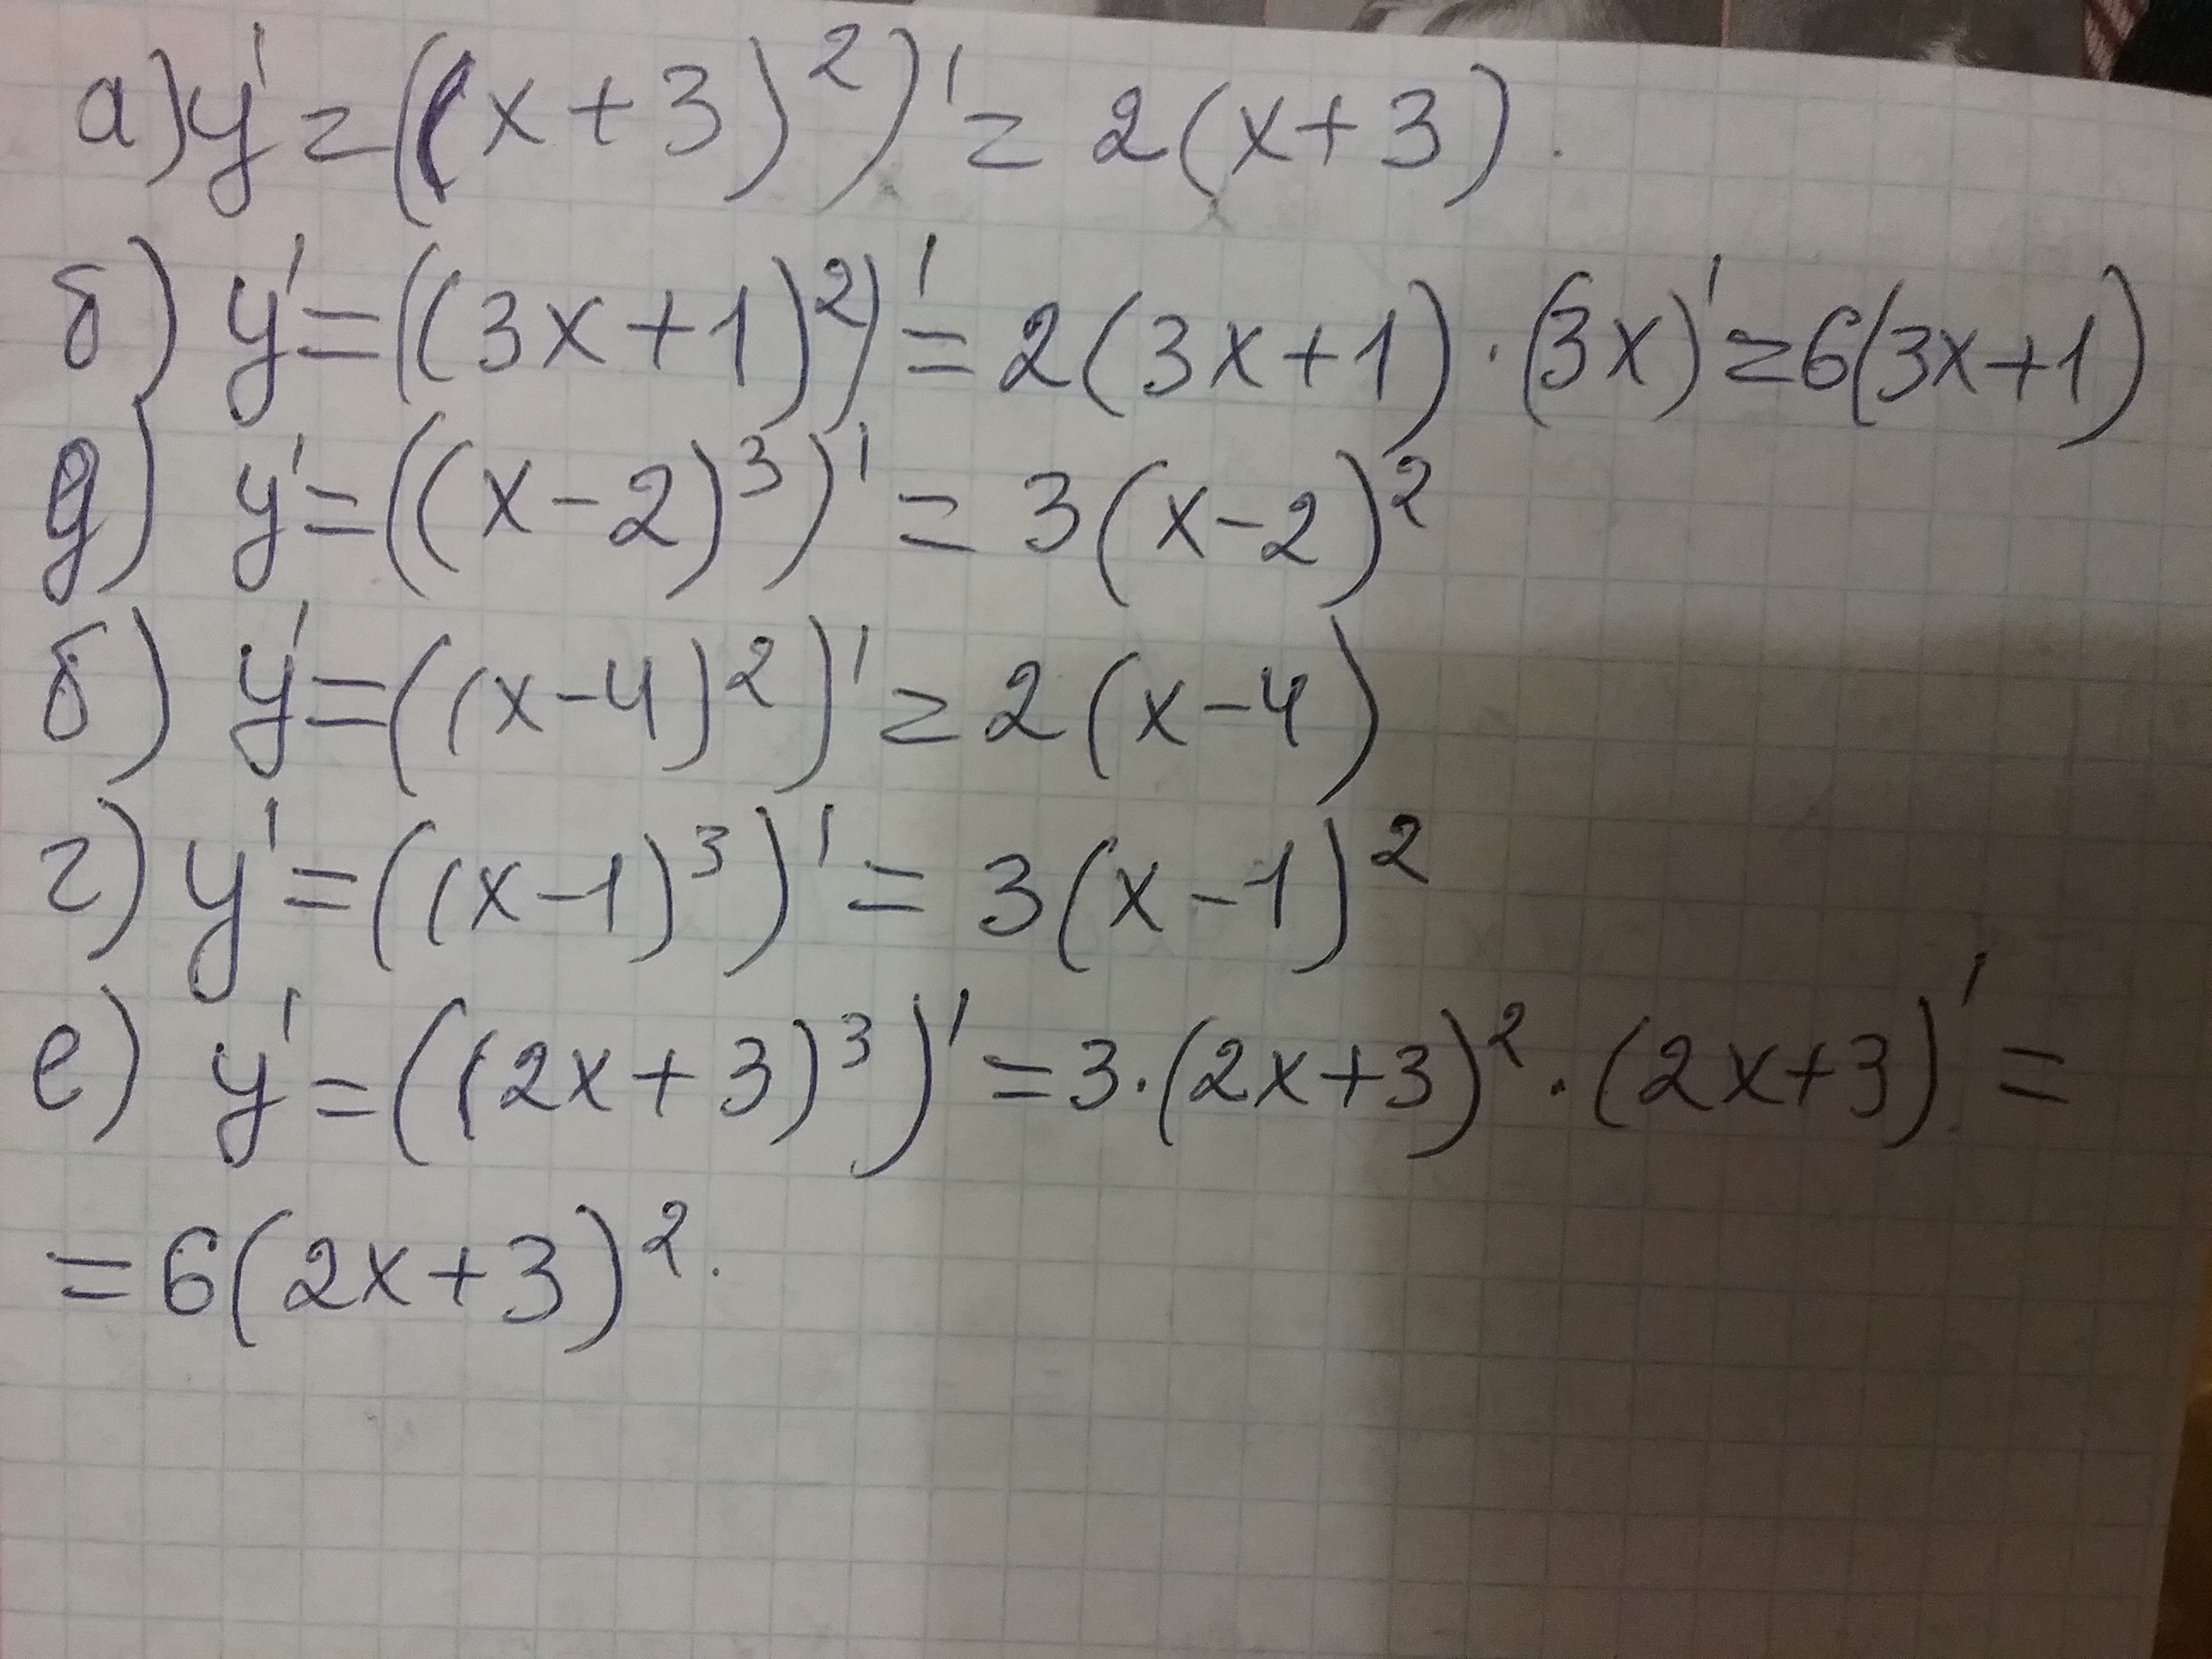 а) y' = ((x+3)²)' = 2(x+3).
б) y' = ((3x+1)²)' = 2(3x+1)·(3x)' = 6(3x+1)
д) y' = ((x-2)³)' = 3(x-2)²
б) y' = ((x-4)²)' = 2(x-4)
г) y' = ((x-1)³)' = 3(x-1)²
е) y' = ((2x+3)³)' = 3·(2x+3)²·(2x+3)' =
= 6(2x+3)².